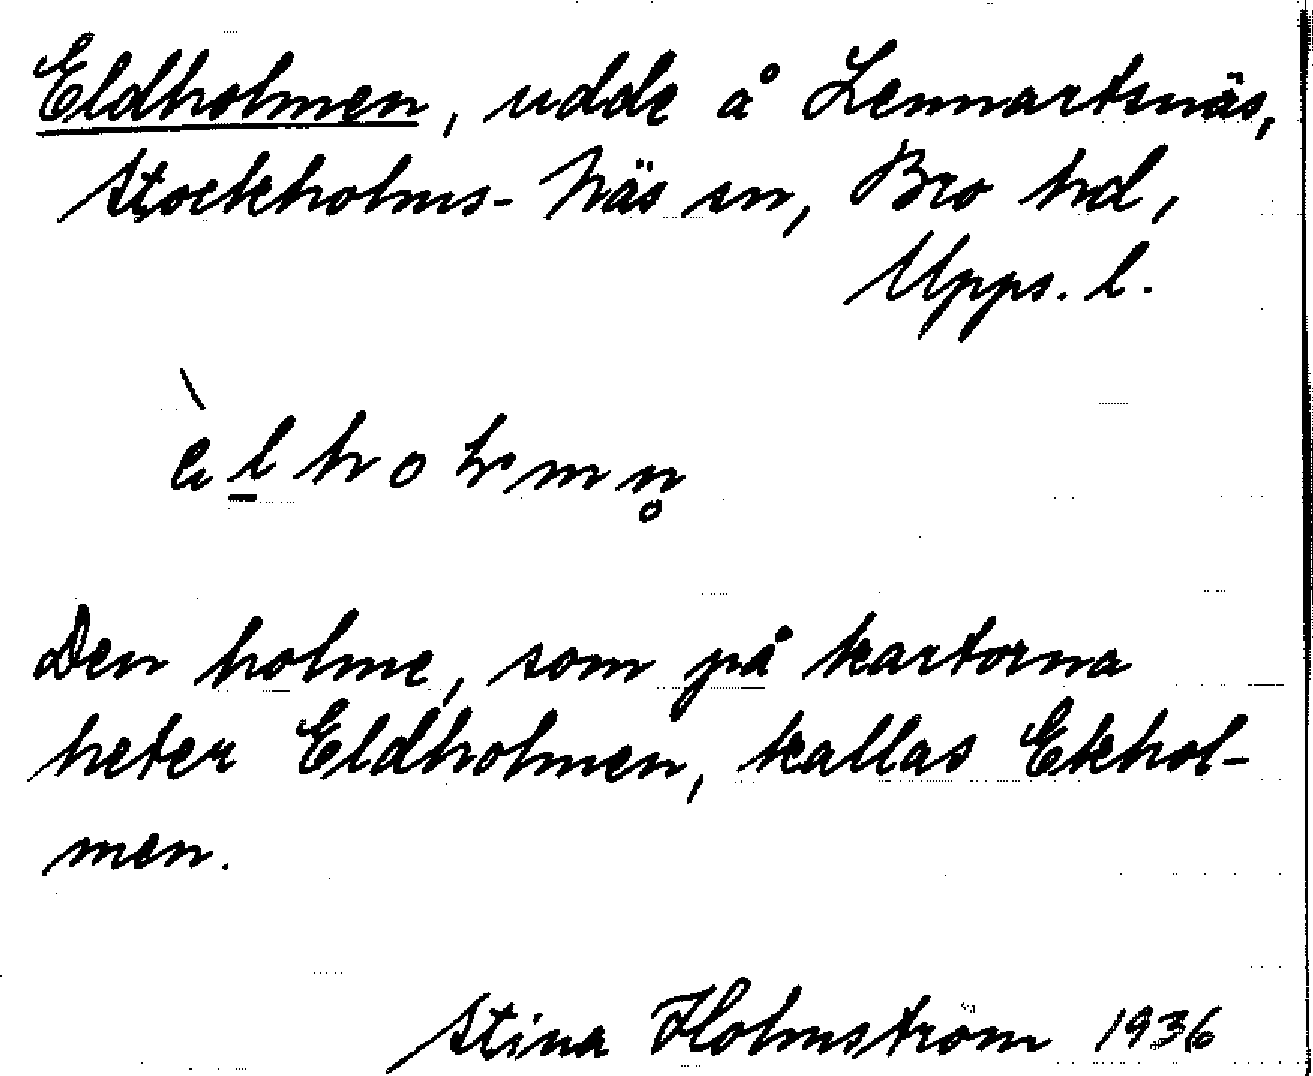 Eldholmen, udde å Lennartsnäs,
Stockholms-Näs sn, Bro hd,
Upps. l.
Den holme, som på kartorna
heter Eldholmen, kallas Ekhol-
men.
Stina Holmström 1936